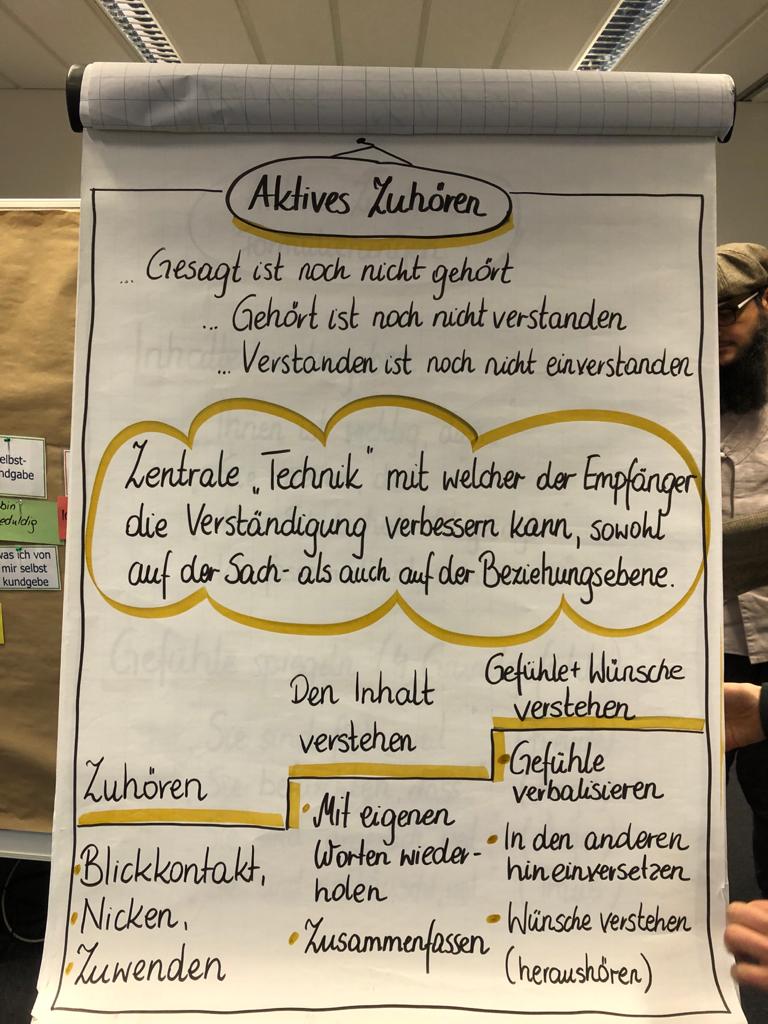 Aktives Zuhören
... Gesagt ist noch nicht gehört
... Gehört ist noch nicht verstanden
... Verstanden ist noch nicht einverstanden
Zentrale „Technik" mit welcher der Empfänger
die Verständigung verbessern kann, sowohl
auf der Sach- als auch auf der Beziehungsebene.
Zuhören
• Blickkontakt,
• Nicken,
• Zuwenden
Den Inhalt
verstehen
• Mit eigenen
Worten wieder-
holen
• Zusammenfassen
Gefühle + Wünsche
verstehen
• Gefühle
verbalisieren
• In den anderen
hineinversetzen
• Wünsche verstehen
(heraushören)
elbst-
ndgabe
bin
eduldig
was ich von
mir selbst
kundgebe